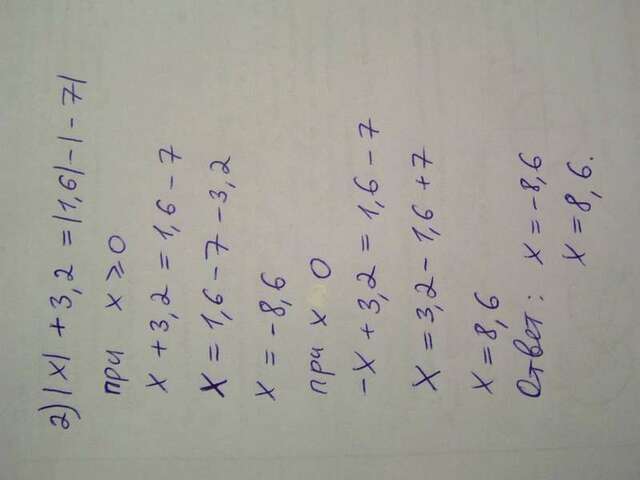 2) |x| + 3,2 = |1,6| - |-7|
при x ≥ 0
x + 3,2 = 1,6 - 7
x = 1,6 - 7 - 3,2
x = -8,6
при x 0
-x + 3,2 = 1,6 - 7
x = 3,2 - 1,6 + 7
x = 8,6
Ответ: x = -8,6
x = 8,6.